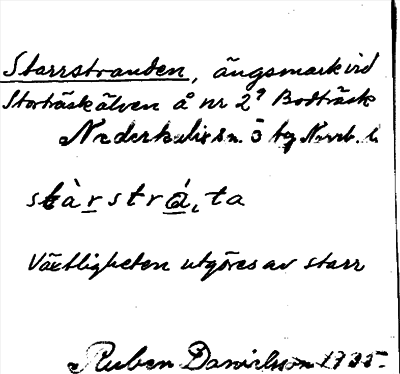 Starrstranden, ängsmark vid
Storträskälven å nr 2⁹ Bodträsk
Nederkalix sn. ö bg Norrb. l.
stàrstrá,ta
Växtligheten utgöres av starr
Ruben Danielsson 1935.